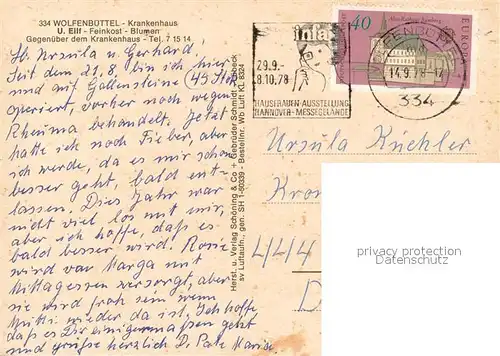 334 WOLFENBÜTTEL - Krankenhaus
U. Eilf - Feinkost - Blumen
Gegenüber dem Krankenhaus - Tel. 7 15 14
Lb. Ursula u. Gerhard.
Seit dem 21.8 bin ich hier
und auf Gallensteine (45 Stck)
operiert, vorher noch wegen
Rheuma behandelt. Jetzt
hatte ich noch Fieber, aber
ich werde, da es mir schon
besser geht, bald ent-
lassen. Dies Jahr war
nicht viel los mit mir,
aber ich hoffe, daß es
bald besser wird. Rosie
wird von Marga mit
Mittagessen versorgt, aber
sie wird froh sein wenn
Mutti wieder da ist. Ich hoffe,
daß es Dir einigermaßen geht
und grüße herzlich D. Pate Marie.
Herst. u. Verlag Schöning & Co + Gebrüder Schmidt, Lübeck
sv Luftaufn., gen. SH 1-60339 - Bestellnr. Wb Luft KL 8324
infa
29.9.-
8.10.78
HAUSFRAUEN-AUSSTELLUNG
HANNOVER-MESSEGELÄNDE
40
Altes Rathaus Bamberg
EUROPA
14.9.78-12
334
Ursula Küchler
444
privacy protection
datenschutz